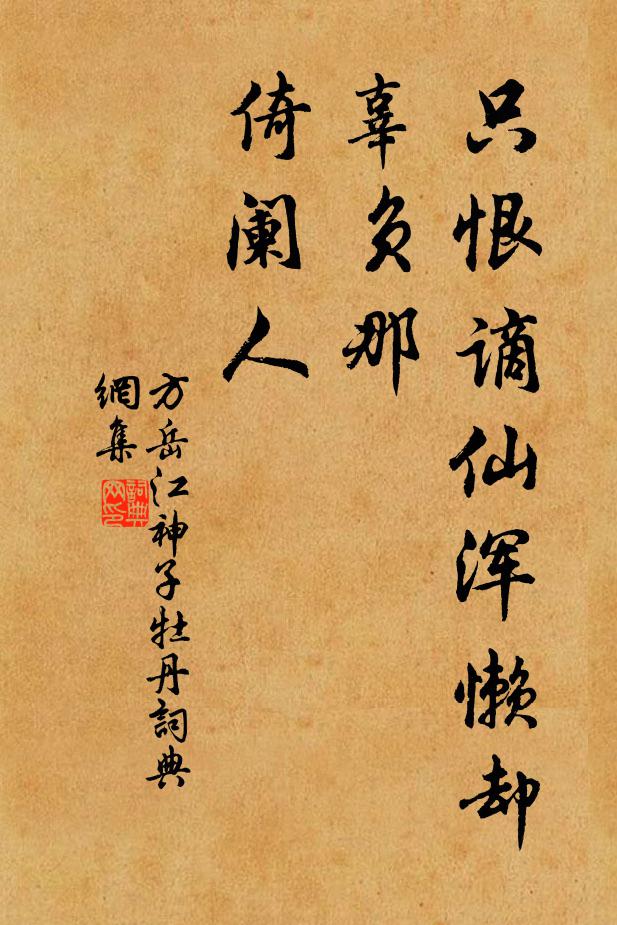 只恨谪仙浑懒却
辜负那
倚阑人
方岳江神子牡丹詞典
網集
詞典
网印